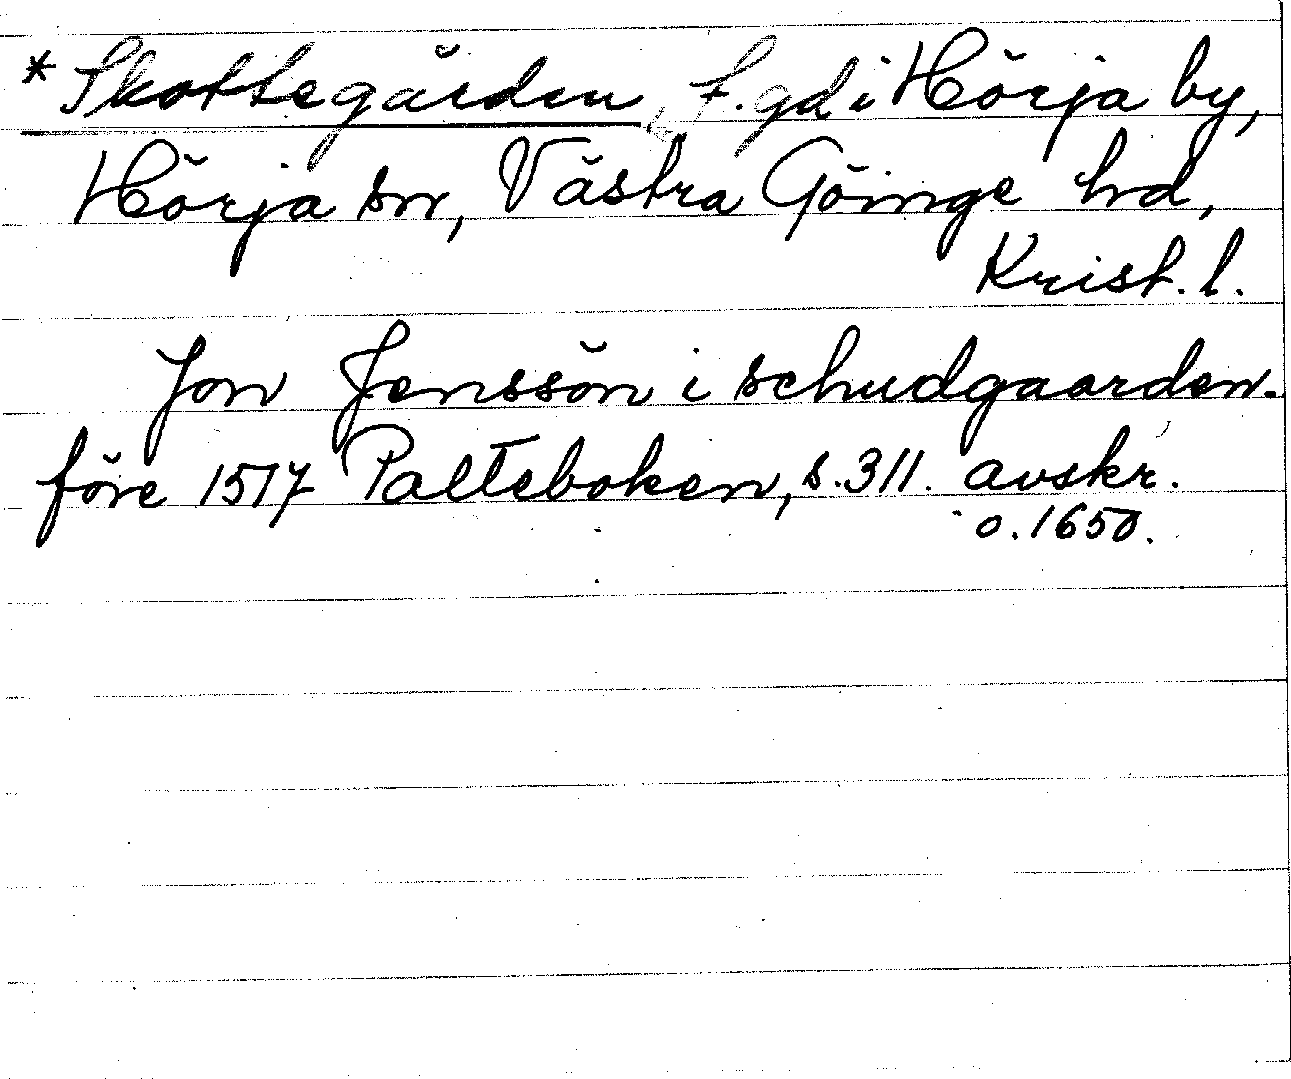 * Skottegården, f. gd i Hörja by,
Hörja sn, Västra Göinge hd,
Krist. l.
Jon Jenssön i schudgaarden.
före 1517 Palteboken, s. 311. avskr.
o. 1650.